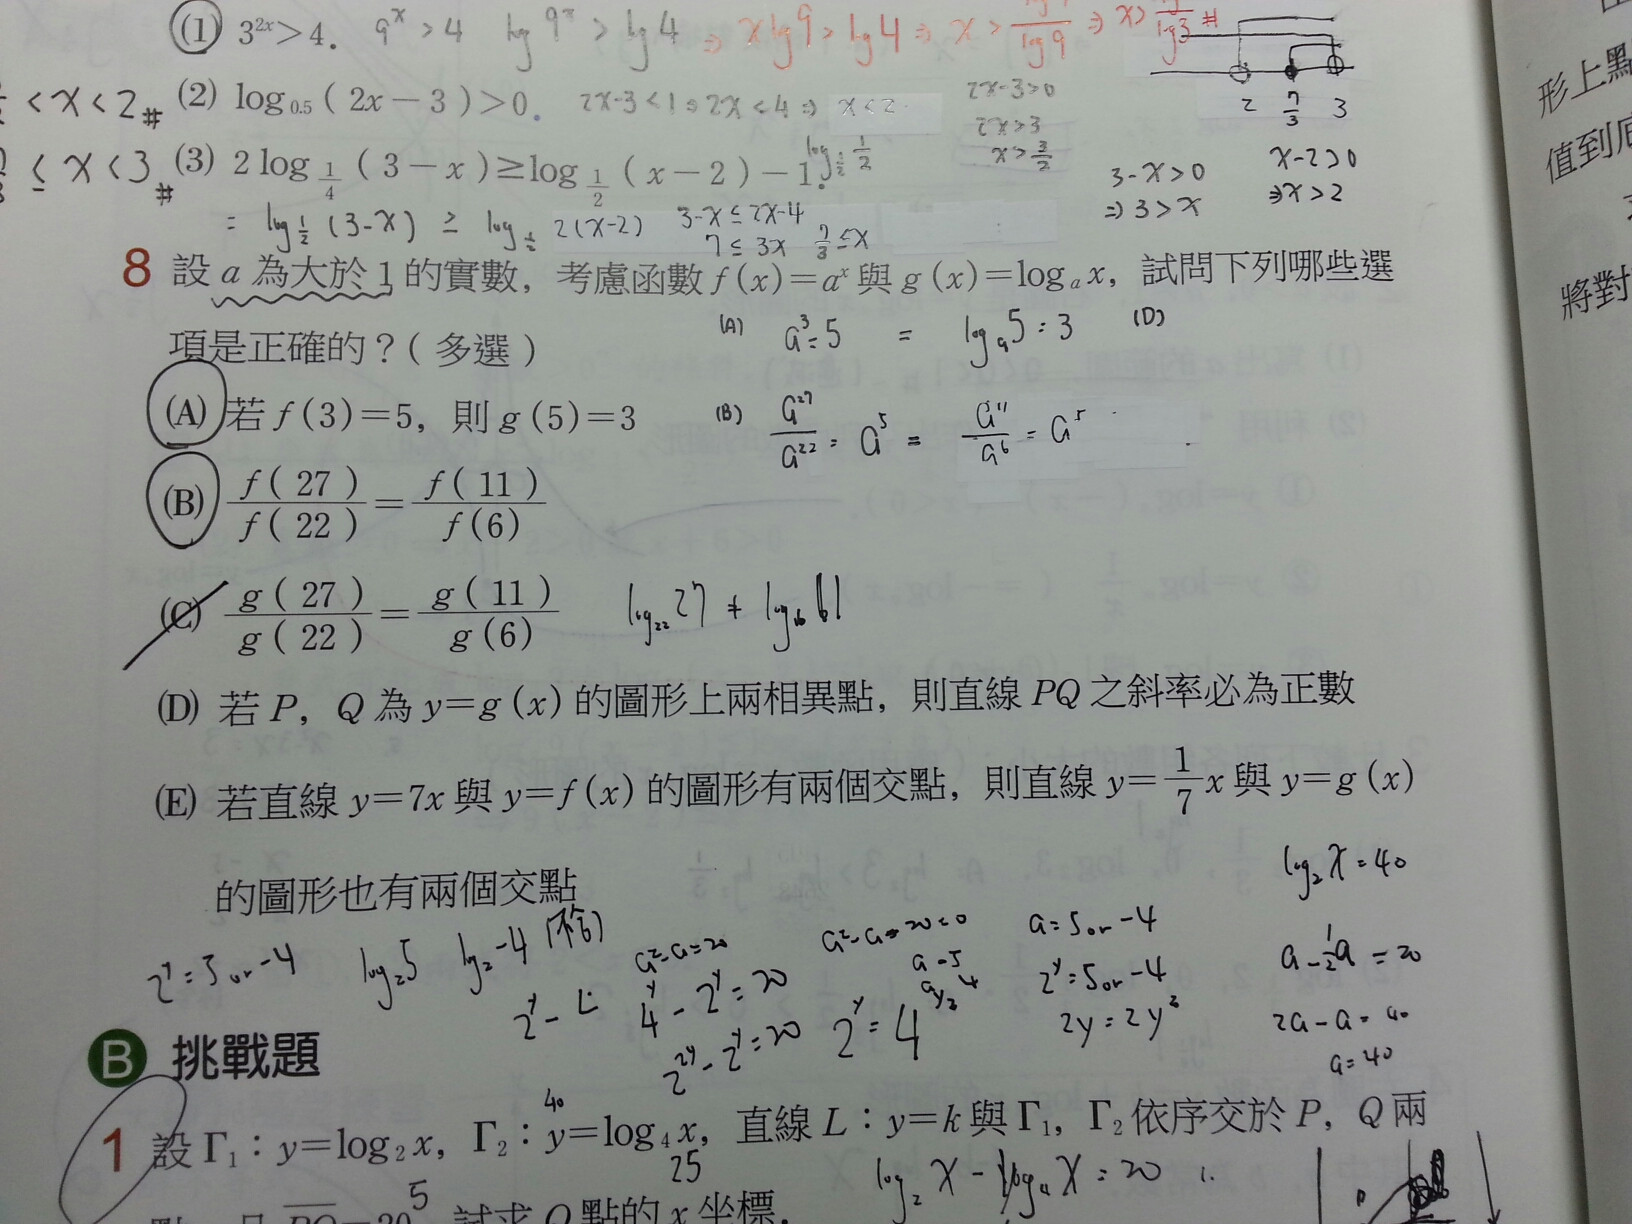 (1) 3^{2x}>4. 9^x>4 log 9^x > log 4 ⇒ x log 9 > log 4 ⇒ x > ⇒ x >
<x<2# (2) log_{0.5}(2x-3)>0. 2x-3<1 ⇒ 2x<4 ⇒ x<2 2x-3>0
2x>3
x>3/2
2 7/3 3
≤x<3# (3) 2log_{1/4}(3-x)≥log_{1/2}(x-2)-1. log_{1/2} 1/2 3-x>0 x-2>0
⇒3>x ⇒x>2
= log_{1/2}(3-x) ≥ log_{1/2} 2(x-2) 3-x≤2x-4
7≤3x 7/3≤x
8 設 a 為大於 1 的實數，考慮函數 f(x)=a^x 與 g(x)=log_a x，試問下列哪些選
項是正確的？(多選) (A) a^3=5 = log_a 5=3 (D)
(A) 若 f(3)=5，則 g(5)=3 (B) a^{27}/a^{22} = a^5 = a^{11}/a^6 = a^5
(B) f(27)/f(22) = f(11)/f(6)
(C) g(27)/g(22) = g(11)/g(6) log_{22} 27 ≠
(D) 若 P，Q 為 y=g(x) 的圖形上兩相異點，則直線 PQ 之斜率必為正數
(E) 若直線 y=7x 與 y=f(x) 的圖形有兩個交點，則直線 y=1/7 x 與 y=g(x)
的圖形也有兩個交點 log_2 x=40
2^y=5or-4 log_2 5 log_2 -4 (不合) a^2-a=20 a^2-a-20=0 a=5or-4 a-1/2a=20
4^y-2^y=20 a=5 2^y=5or-4 2a-a=40
2^{2y}-2^y=20 2^y=4 2y=2y^2 a=40
B 挑戰題
40
1 設 Γ_1：y=log_2 x，Γ_2：y=log_4 x，直線 L：y=k 與 Γ_1，Γ_2 依序交於 P，Q 兩
25 log_2 x - log_4 x = 20
5
試求 Q 點的 x 坐標.
形上
值到
將對